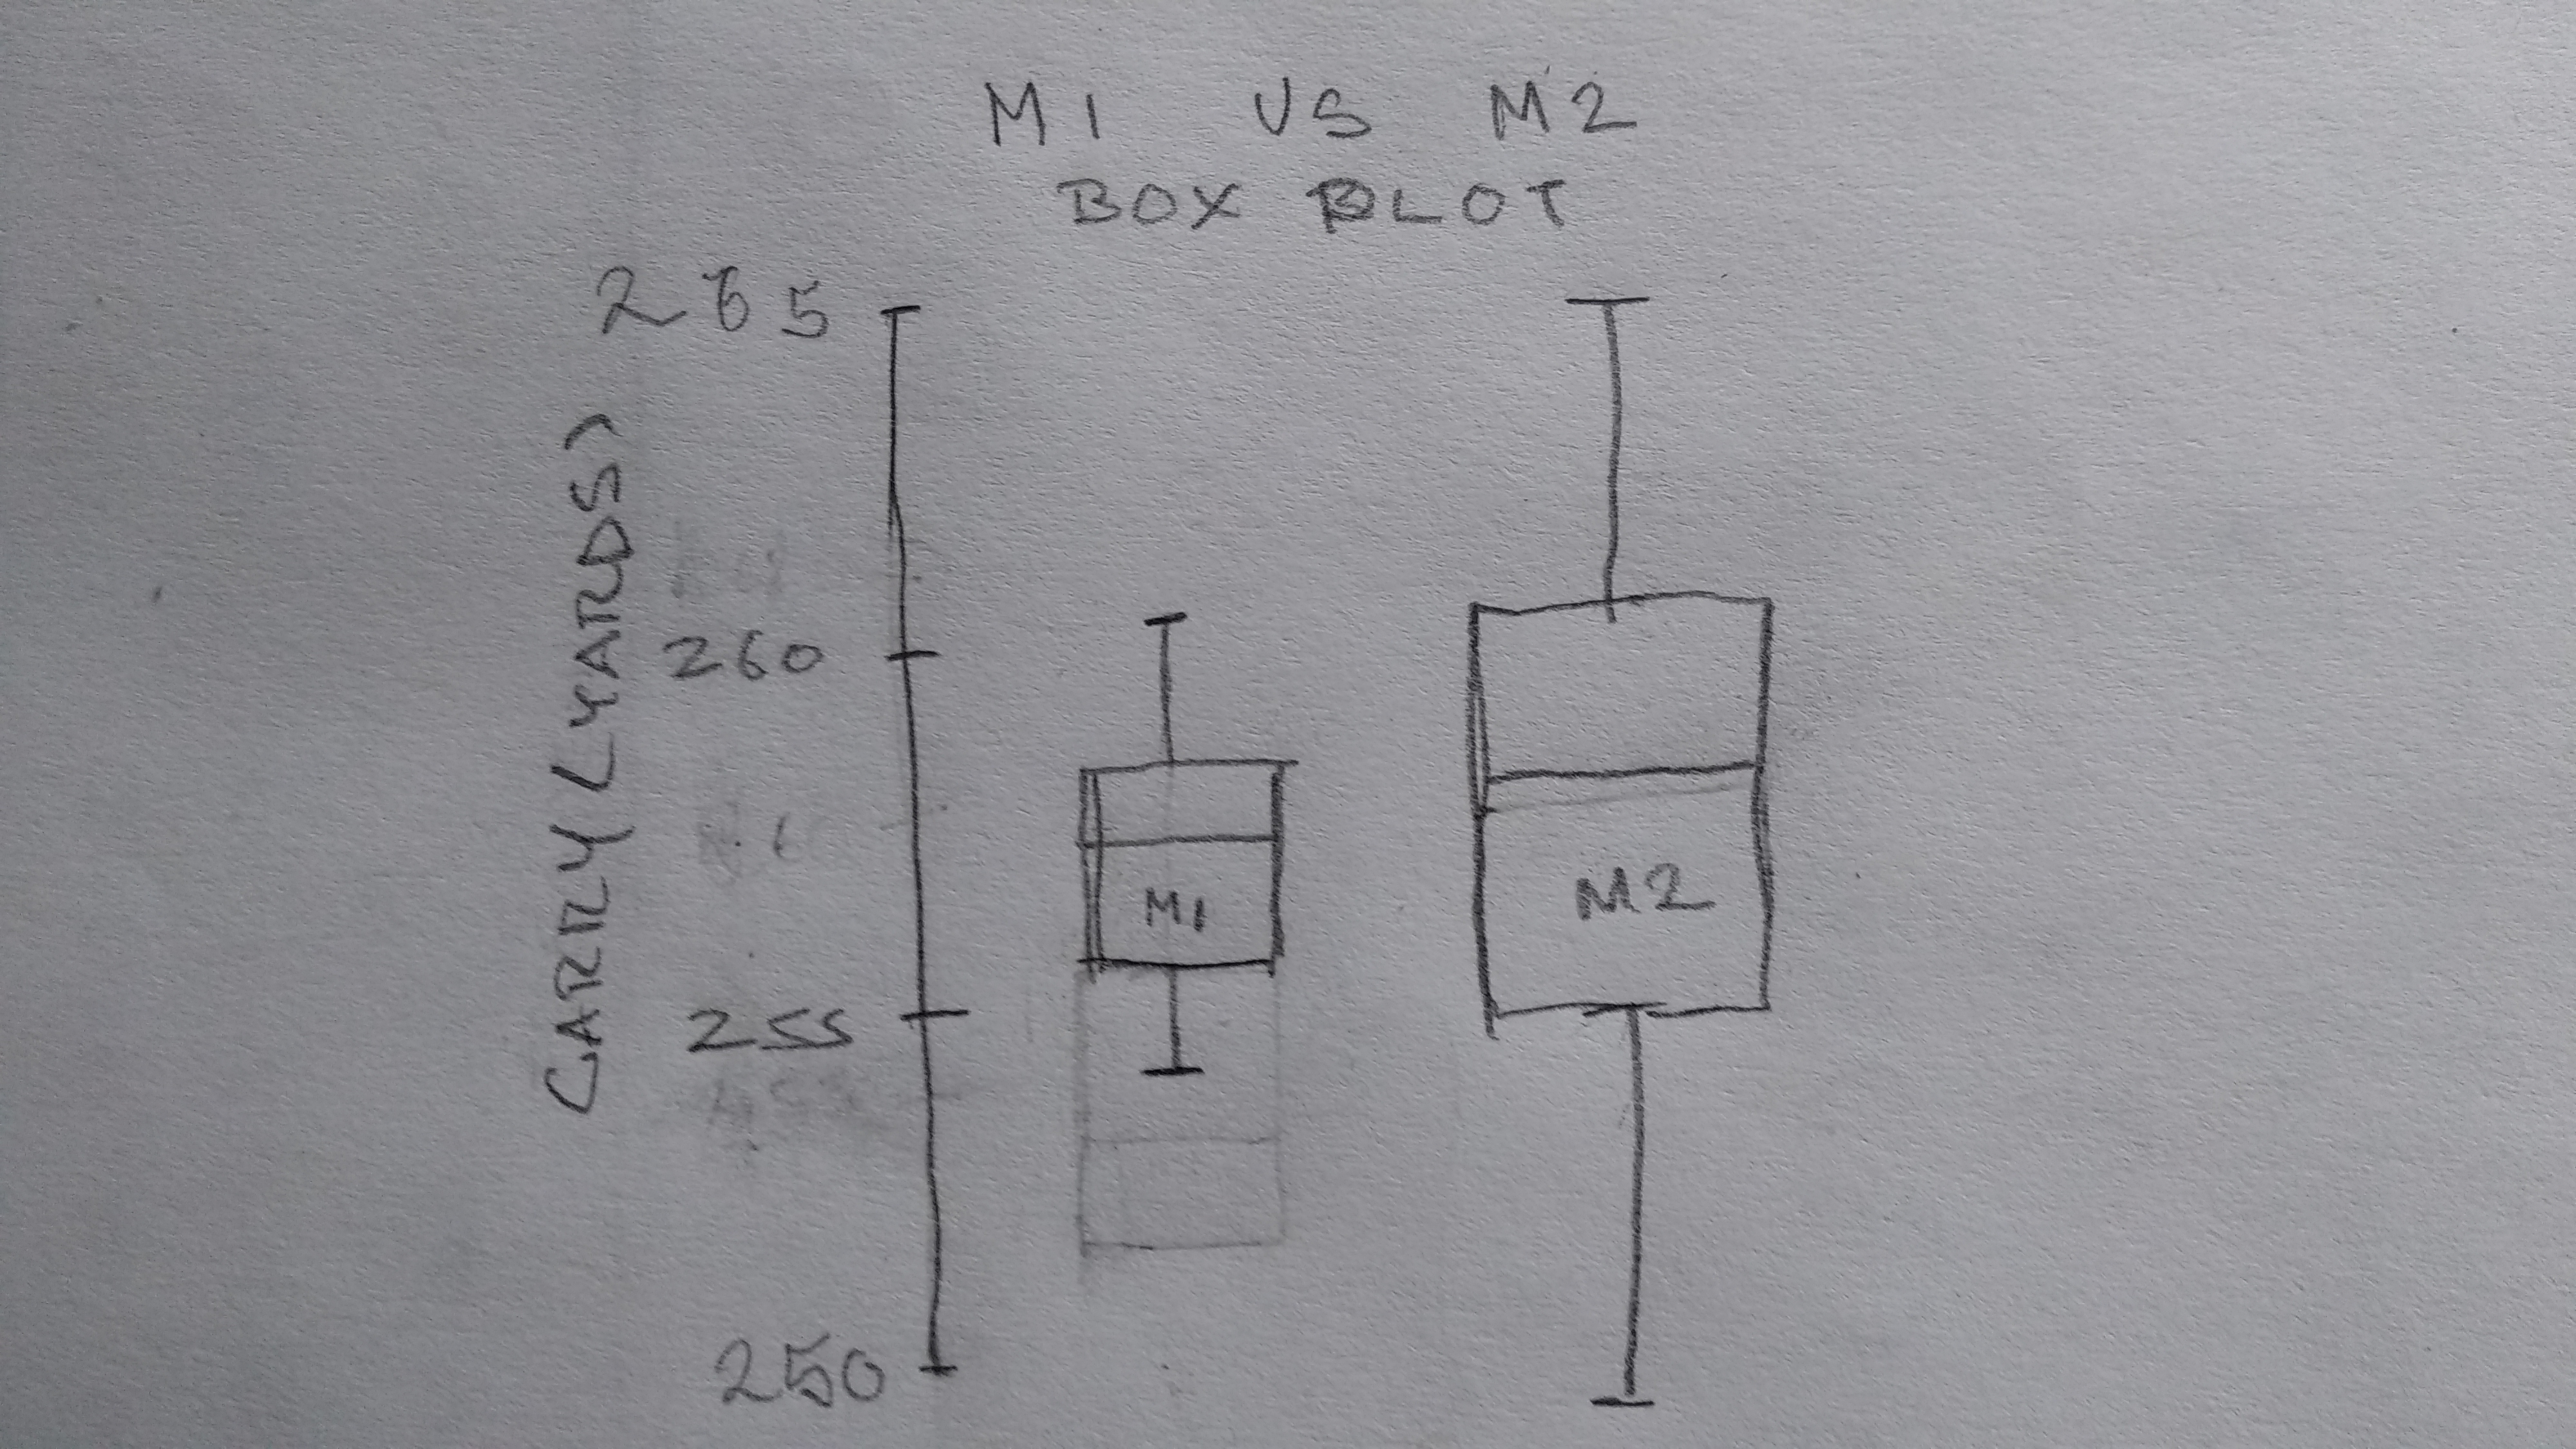 M1 VS M2
BOX PLOT
CARRY (YARDS)
265
260
255
250
M1
M2